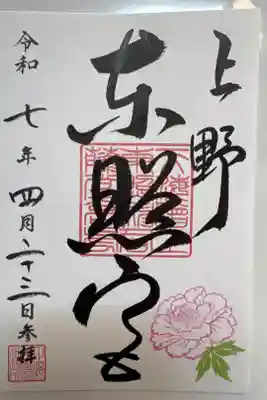 上野
東照宮
令和七年四月二十三日参拝